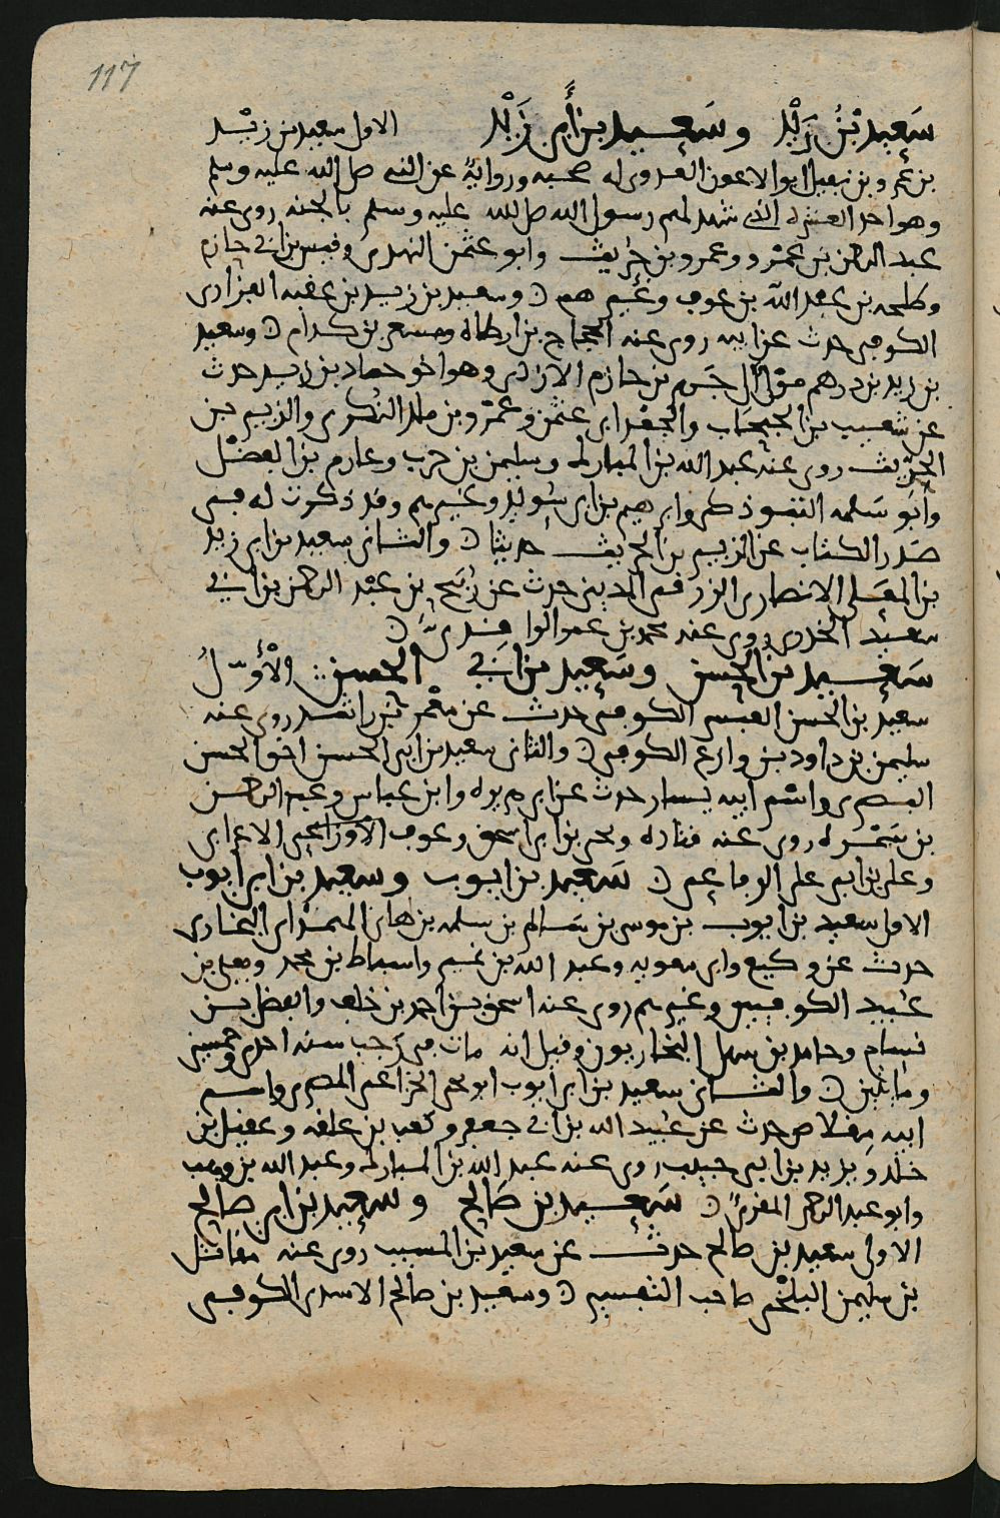 117
سَعِيد بْنُ زَيْد وسَعِيد بن أَبي زَيْد الاول سعيد بن زيد
بن عمرو بن نفيل ابو الاعور العدوى له صحبه ورواية عن النبى صلى الله عليه وسلم
وهو احد العشره الذى شهد لهم رسول الله صلى الله عليه وسلم بالجنه روى عنه
عبد الرحمن بن عمرو وعمرو بن حريث وابو عثمن النهدى وقيس بن ابى حازم
وطلحه بن عبد الله بن عوف وغيرهم ه وسعيد بن زيد بن عقبه الفزارى
الكوفى حدث عن ابيه روى عنه الحجاج بن ارطاه ومسعر بن كدام ه وسعيد
بن زيد بن درهم مولى ال جرير بن حازم الازدى وهو اخو حماد بن زيد حدث
عن شعيب بن الحبحاب والجعد ابى عثمن وعمرو بن ملك النكرى والزبير بن
الخريت روى عنه عبد الله بن المبارك وسليمن بن حرب وعارم بن الفضل
وابو سلمه التبوذكى وابرهيم بن ابى سويد وغيرهم وقد ذكرت له فى
صدر الكتاب عن الزبير بن الخريت حديثا ه والثانى سعيد بن ابى زيد
بن المعلى الانصارى الزرقى المدينى حدث عن ربيح بن عبد الرحمن بن ابى
سعيد الخدرى روى عنه محمد بن عمر الواقدى ه
سَعيد بن الحسن وسَعيد بن ابى الحسن الأول
سعيد بن الحسن العبسى الكوفى حدث عن معمر بن راشد روى عنه
سليمن بن داود بن وازع الكوفى ه والثانى سعيد بن ابى الحسن اخو الحسن
البصرى واسم ابيه يسار حدث عن ابى هريره وابن عباس وعبد الرحمن
بن سمره روى عنه قتاده ويحيى بن ابى اسحق وعوف الاعرابى
وعلى بن على الرفاعى ه سَعيد بن ايوب وسعيد بن ابى ايوب
الاول سعيد بن ايوب بن موسى بن سالم بن سلمه بن هانى الهمدانى البخارى
حدث عن وكيع وابى معويه وعبد الله بن نمير واسباط بن محمد ويعلى بن
عبيد الكوفيين وغيرهم روى عنه اسحق بن احمد بن خلف والفضل بن
بسام وحامد بن سهل البخاريون وقيل انه مات فى رجب سنه احدى وخمسين
ومائتين ه والثانى سعيد بن ابى ايوب ابو يحيى الخزاعى المصرى واسم
ابيه مقلاص حدث عن عبيد الله بن ابى جعفر وكعب بن علقمه وعقيل بن
خلد ويزيد بن ابى حبيب روى عنه عبد الله بن المبارك وعبد الله بن وهب
وابو عبد الرحمن المقرى ه سَعيد بن صَالح وسعيد بن ابى صالح
الاول سعيد بن صالح حدث عن سعيد بن المسيب روى عنه مقاتل
بن سليمن البلخى صاحب التفسير ه وسعيد بن صالح الاسدى الكوفى